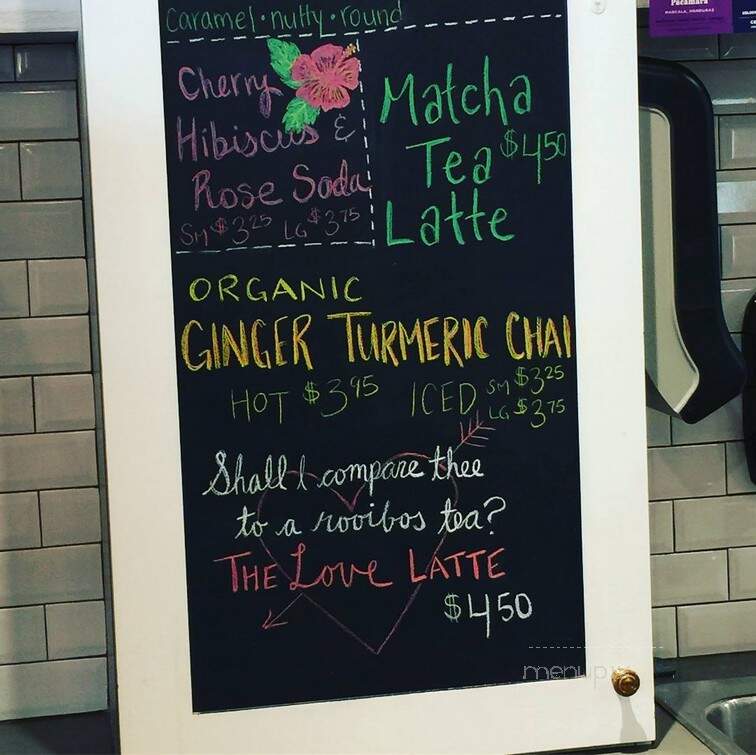 Caramel · nutty · round
Cherry
Hibiscus &
Rose Soda
SM $3.25 LG $3.75
Matcha
Tea $4.50
Latte
ORGANIC
GINGER TURMERIC CHAI
HOT $3.95 ICED SM $3.25
LG $3.75
Shall I compare thee
to a rooibos tea?
THE Love LATTE
$4.50
Pacamara